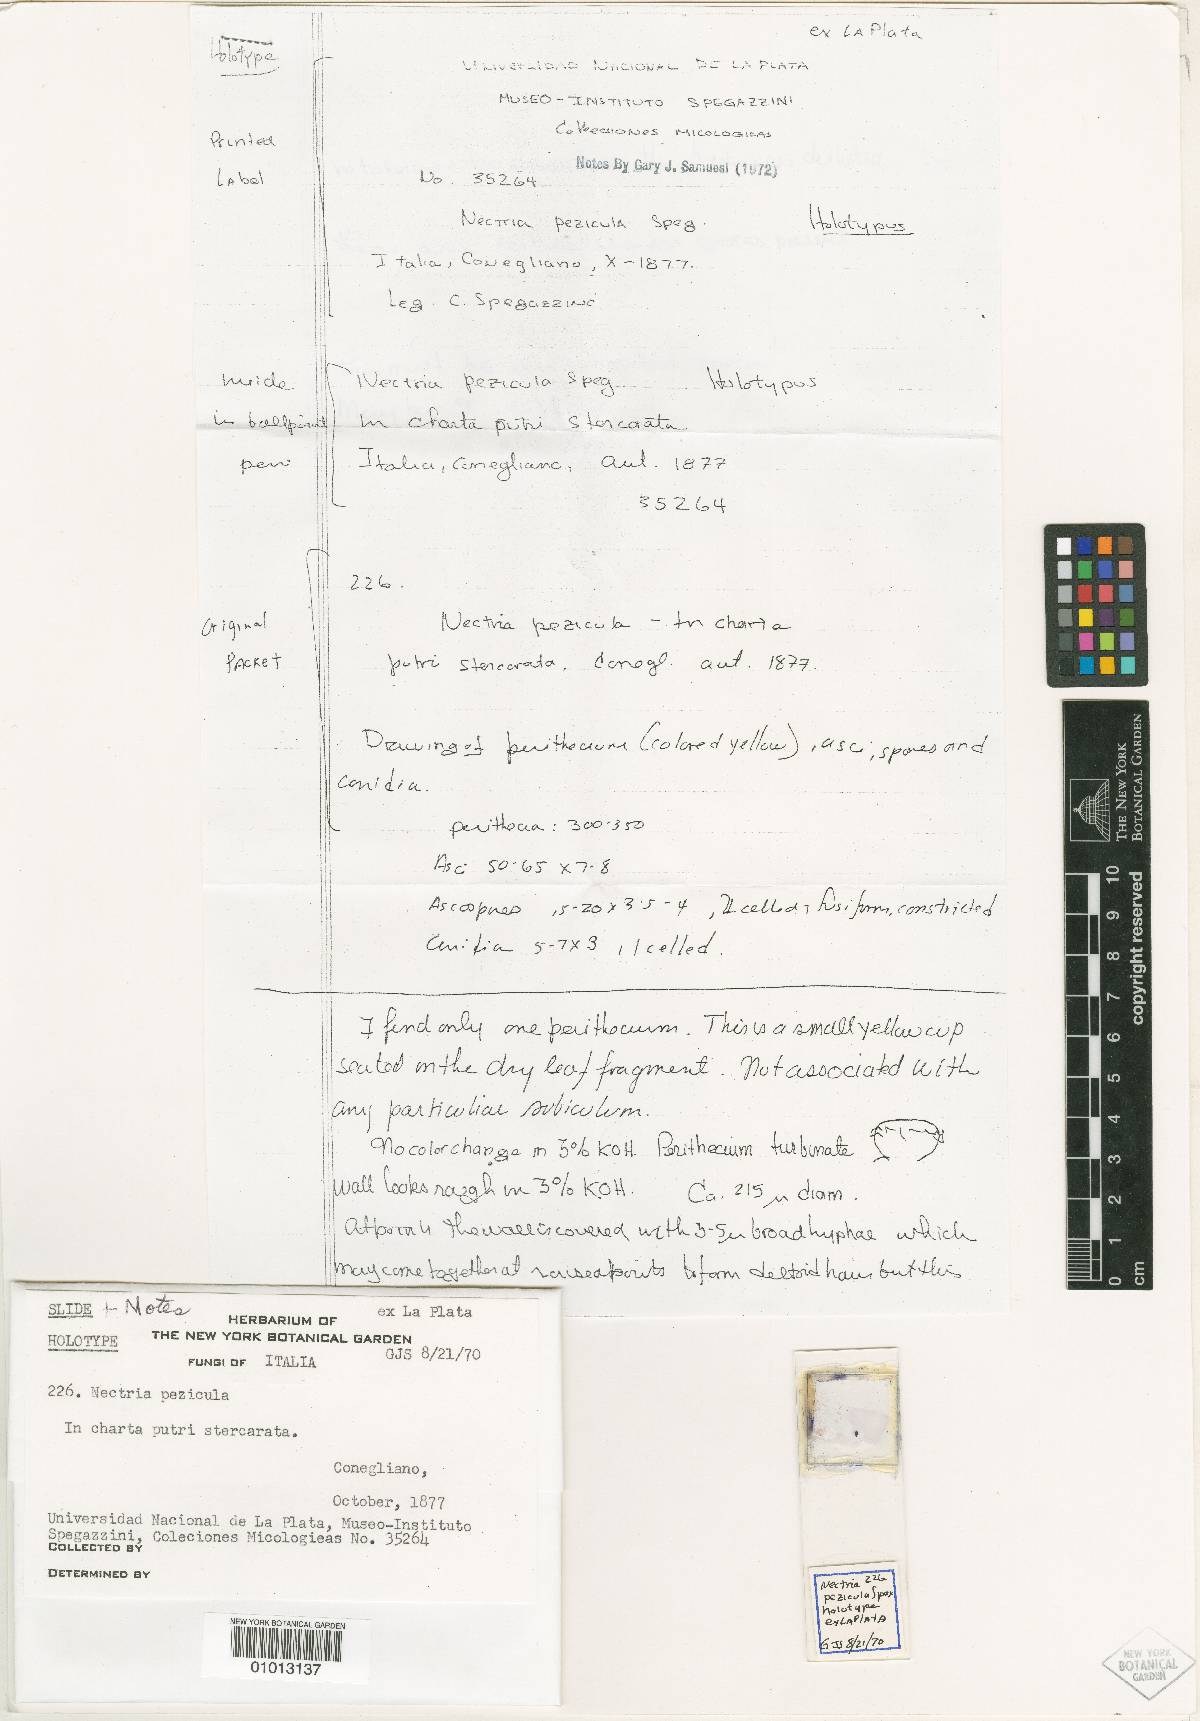 Holotype
ex LA Plata
UNIVERSIDAD NACIONAL DE LA PLATA
MUSEO - INSTITUTO SPEGAZZINI
Colecciones MICOLOGICAS
Notes By Gary J. Samuesl (1972)
Printed
Label
No. 35264
Nectria pezicula Speg. Holotypus
Italia, Conegliano, X-1877.
Leg. C. Spegazzini
Inside
in ballpoint
pen
Nectria pezicula Speg. Holotypus
In charta putri stercorata
Italia, Conegliano, aut. 1877
35264
Original
PACKET
226.
Nectria pezicula - In charta
putri stercorata. Conegl. aut. 1877.
Drawing of perithecium (colored yellow), asci, spores and
conidia.
perithecia: 300-350
Asci 50-65 x 7-8
Ascospores 15-20 x 3.5-4, 2 celled, fusiform, constricted
Conidia 5-7x3, 1 celled.
I find only one perithecium. This is a small yellow cup
seated on the dry leaf fragment. Not associated with
any particuliar subiculum.
No color change in 3% KOH. Perithecium turbinate
wall looks rough in 3% KOH. Ca. 215 µ diam.
the wall is covered with 3-5µ broad hyphae which
may come together at raised points to form deltoid hairs but this
SLIDE + Notes
ex La Plata
HERBARIUM OF
HOLOTYPE THE NEW YORK BOTANICAL GARDEN
GJS 8/21/70
FUNGI OF ITALIA
226. Nectria pezicula
In charta putri stercarata.
Conegliano,
October, 1877
Universidad Nacional de La Plata, Museo-Instituto
Spegazzini, Coleciones Micologieas No. 35264
COLLECTED BY
DETERMINED BY
NEW YORK BOTANICAL GARDEN
01013137
Nectria 226
pezicula
holotype
ex LAPlAtA
GJS 8/21/70
THE NEW YORK
BOTANICAL GARDEN
copyright reserved
10
9
8
7
6
5
4
3
2
1
0
cm
NEW YORK
BOTANICAL
GARDEN